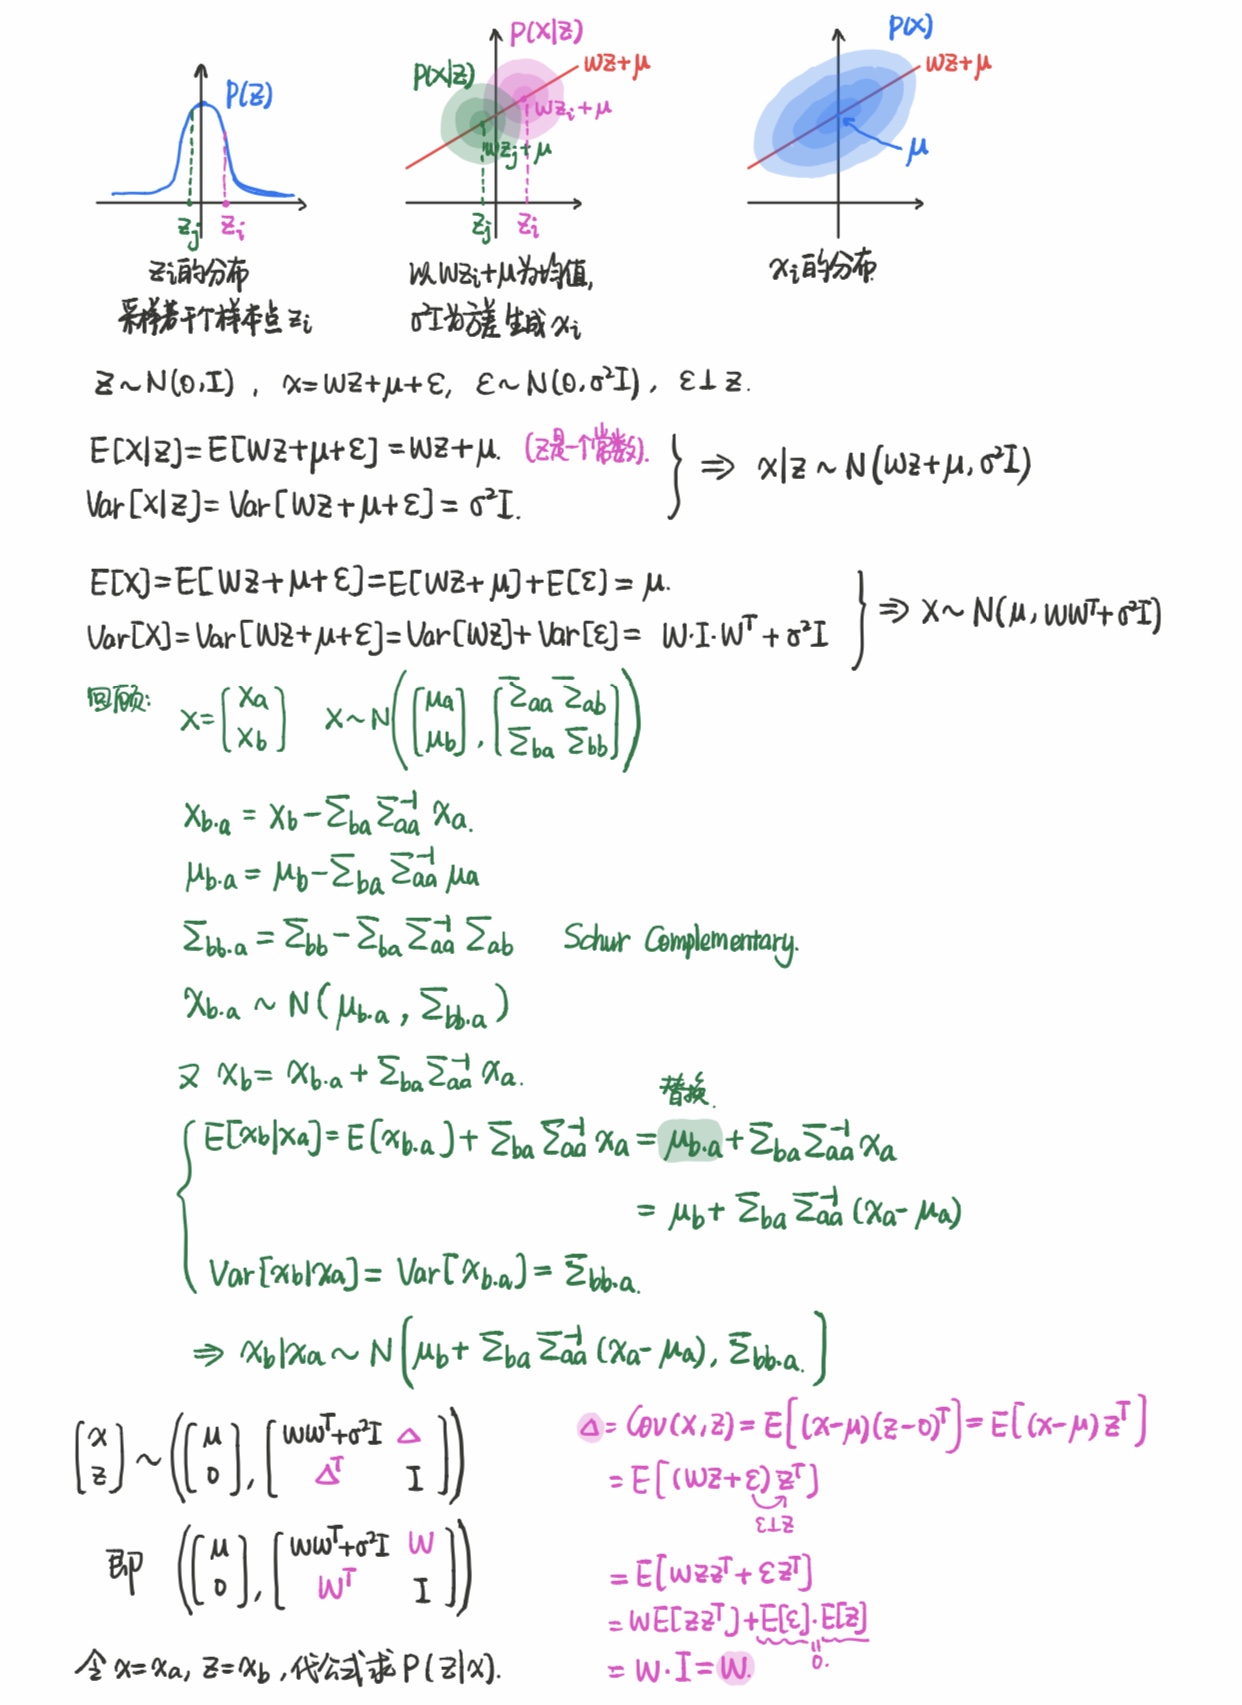 P(z)
z_j z_i
z_i的分布
采样若干个样本点z_i
P(x|z)
P(x|z)
wz+μ
wz_i+μ
wz_j+μ
z_j z_i
以wz_i+μ为均值,
σ²I为方差生成x_i
P(x)
wz+μ
μ
x_i的分布.
z~N(0,I), x=wz+μ+ε, ε~N(0,σ²I), ε⊥z.
E[x|z]=E[wz+μ+ε]=wz+μ. (z是一个常数).
Var[x|z]=Var[wz+μ+ε]=σ²I.
⇒ x|z~N(wz+μ,σ²I)
E[x]=E[wz+μ+ε]=E[wz+μ]+E[ε]=μ.
Var[x]=Var[wz+μ+ε]=Var[wz]+Var[ε]= w·I·wᵀ+σ²I
⇒ x~N(μ,wwᵀ+σ²I)
回顾: x=[x_a x_b] x~N([μ_a μ_b],[Σ_aa Σ_ab Σ_ba Σ_bb])
x_b·a = x_b-Σ_ba Σ_aa⁻¹ x_a.
μ_b·a = μ_b-Σ_ba Σ_aa⁻¹ μ_a
Σ_bb·a = Σ_bb-Σ_ba Σ_aa⁻¹ Σ_ab Schur Complementary.
x_b·a ~ N(μ_b·a, Σ_bb·a)
又 x_b= x_b·a+Σ_ba Σ_aa⁻¹ x_a.
替换.
E[x_b|x_a]=E[x_b·a]+Σ_ba Σ_aa⁻¹ x_a=μ_b·a+Σ_ba Σ_aa⁻¹ x_a
= μ_b+Σ_ba Σ_aa⁻¹ (x_a-μ_a)
Var[x_b|x_a]= Var[x_b·a]=Σ_bb·a.
⇒ x_b|x_a~N(μ_b+Σ_ba Σ_aa⁻¹ (x_a-μ_a), Σ_bb·a.)
[x z]~([μ 0],[wwᵀ+σ²I Δ Δᵀ I])
即 ([μ 0],[wwᵀ+σ²I w wᵀ I])
令x=x_a, z=x_b,代公式求P(z|x).
Δ=Cov(x,z)=E[(x-μ)(z-0)ᵀ]=E[(x-μ)zᵀ]
=E[(wz+ε)zᵀ]
ε⊥z
=E[wzzᵀ+εzᵀ]
=wE[zzᵀ]+E[ε]·E[z]
=0.
=w·I=w.